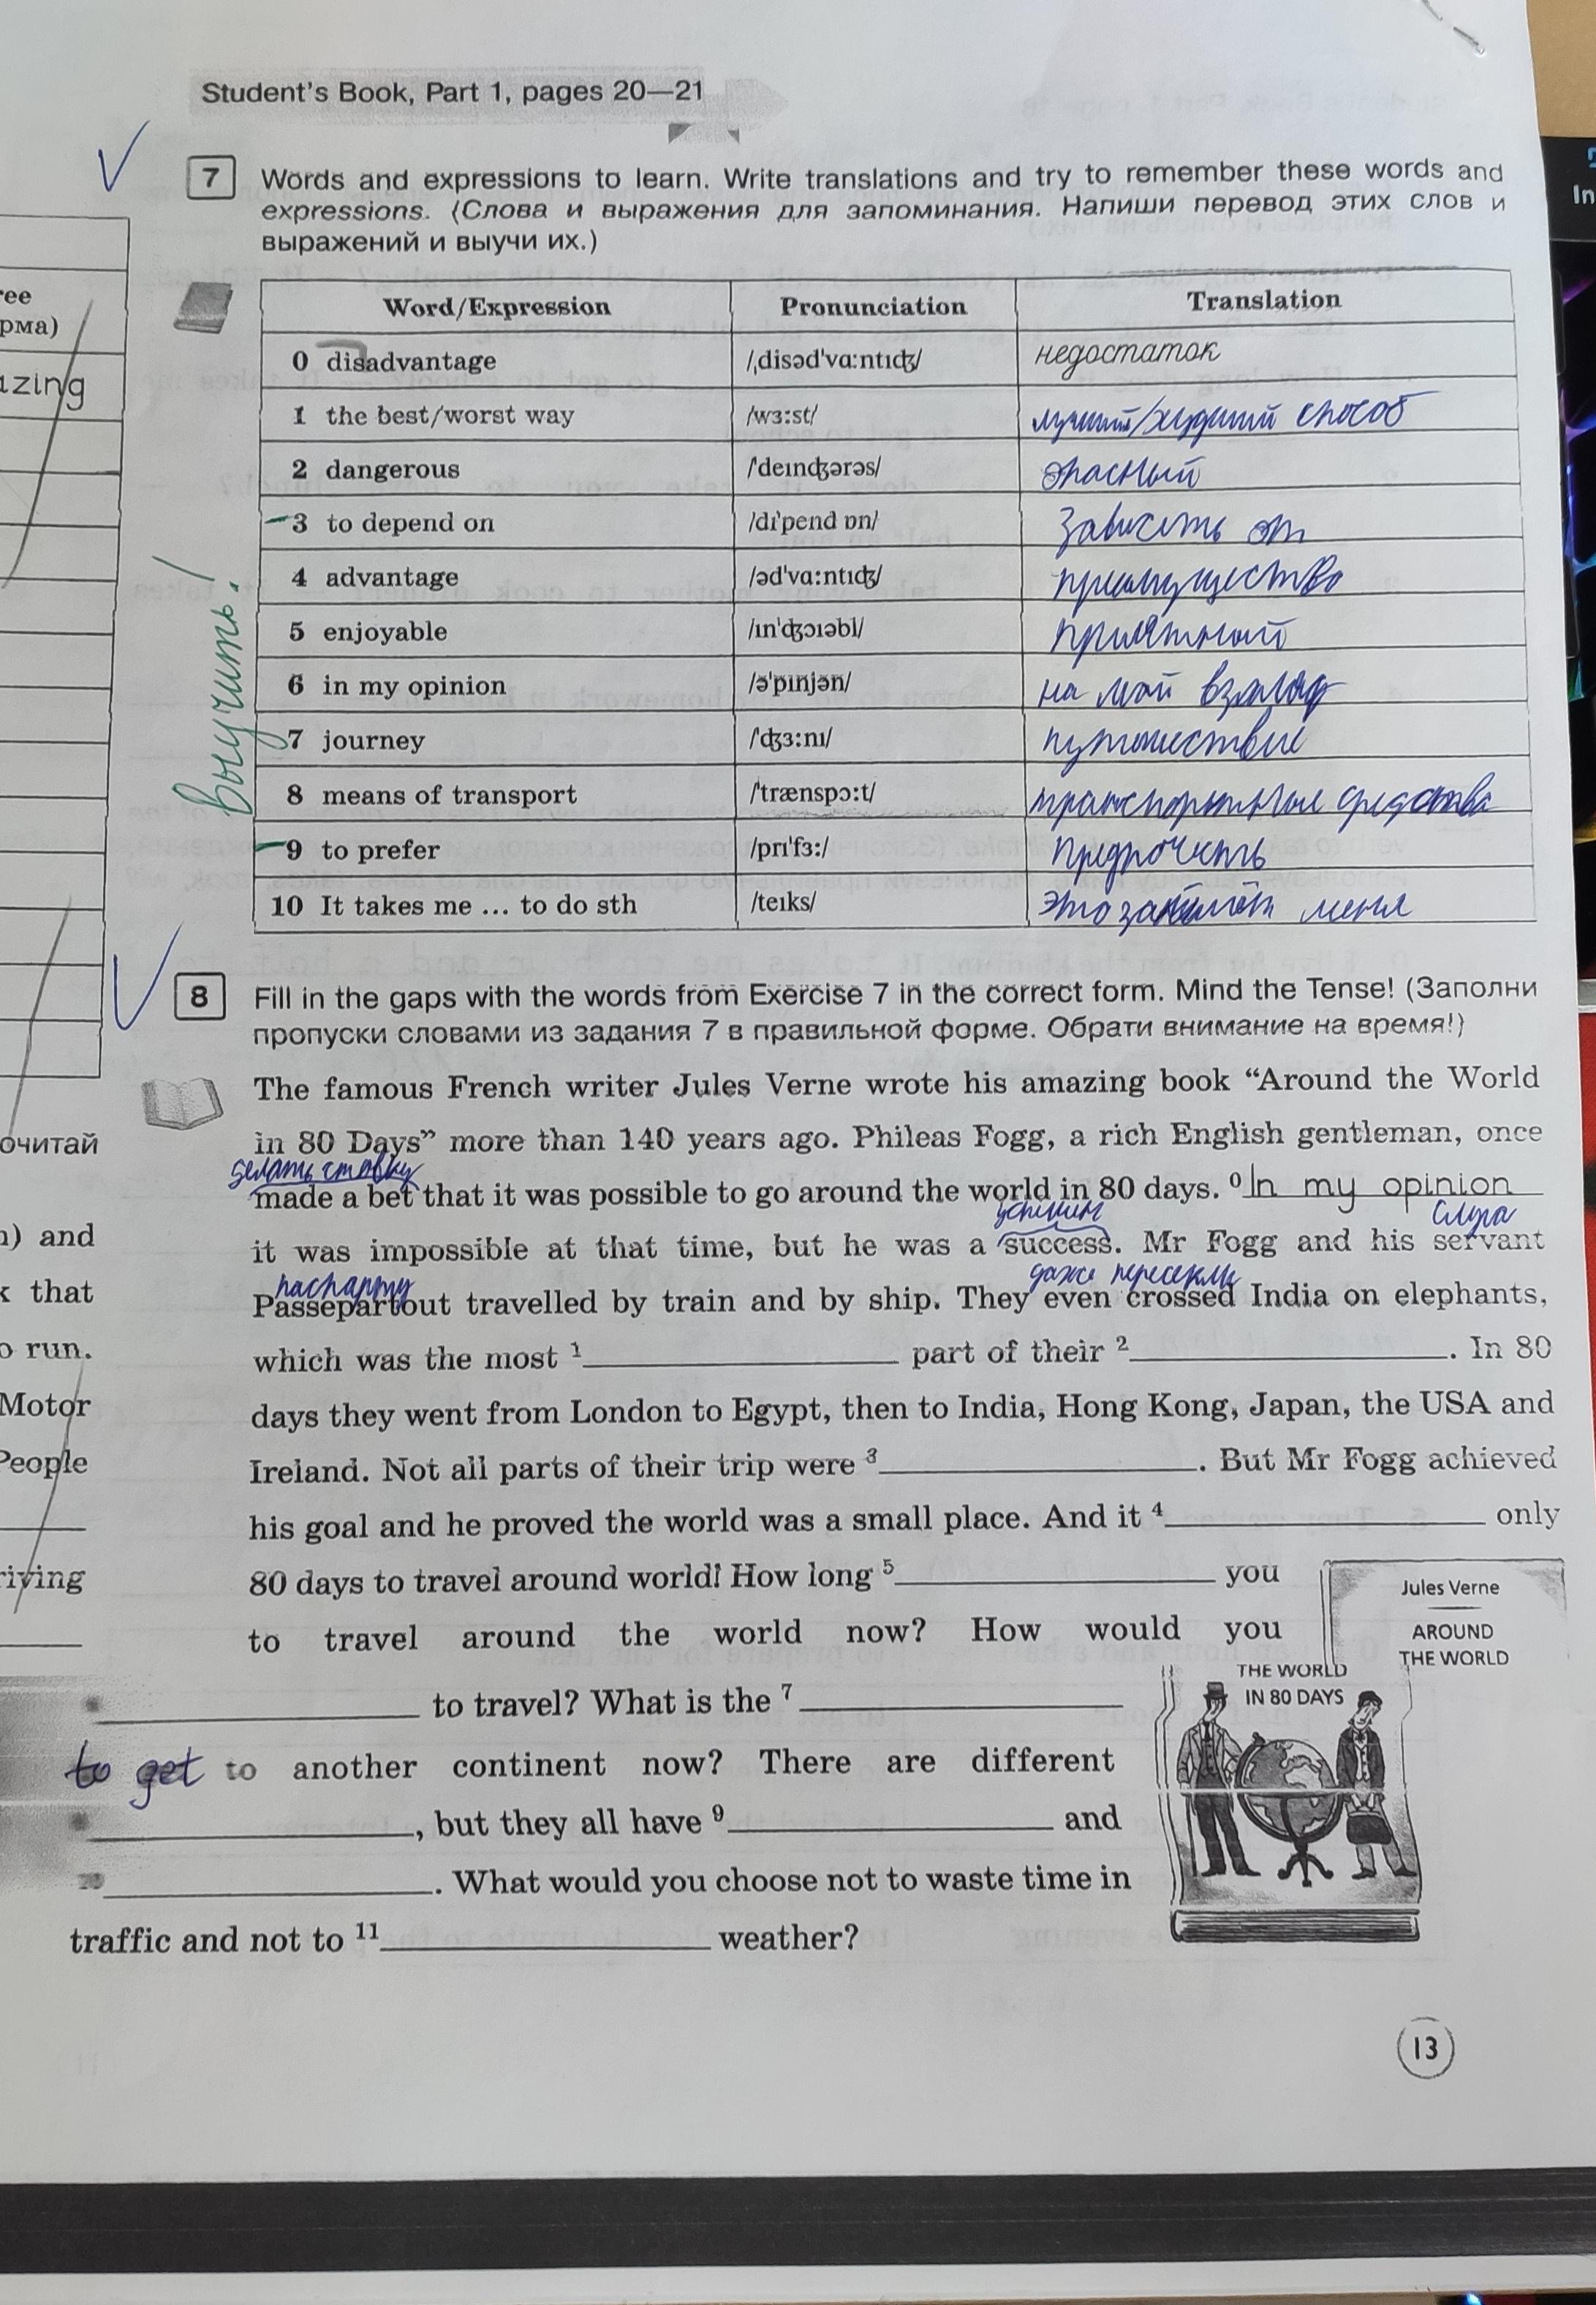 Student's Book, Part 1, pages 20—21
7 Words and expressions to learn. Write translations and try to remember these words and
expressions. (Слова и выражения для запоминания. Напиши перевод этих слов и
выражений и выучи их.)
Word/Expression Pronunciation Translation
0 disadvantage /ˌdisəd'vɑ:ntɪʤ/ недостаток
1 the best/worst way /wɜ:st/ лучший/худший способ
2 dangerous /'deɪnʤərəs/ опасный
3 to depend on /dɪ'pend ɒn/ Зависить от
4 advantage /əd'vɑ:ntɪʤ/ преимущество
5 enjoyable /ɪn'ʤɔɪəbl/ приятный
6 in my opinion /ə'pɪnjən/ на мой взгляд
7 journey /'ʤɜ:nɪ/ путешествие
8 means of transport /'trænspɔ:t/ транспортные средства
9 to prefer /prɪ'fɜ:/ предпочесть
10 It takes me ... to do sth /teɪks/ это займёт меня
выучить!
ree
рма)
azing
очитай
n) and
k that
o run.
Motor
People
riving
8 Fill in the gaps with the words from Exercise 7 in the correct form. Mind the Tense! (Заполни
пропуски словами из задания 7 в правильной форме. Обрати внимание на время!)
The famous French writer Jules Verne wrote his amazing book “Around the World
in 80 Days” more than 140 years ago. Phileas Fogg, a rich English gentleman, once
делать ставку
made a bet that it was possible to go around the world in 80 days. 0 In my opinion
успешим слуга
it was impossible at that time, but he was a success. Mr Fogg and his servant
паспарту даже пересекли
Passepartout travelled by train and by ship. They even crossed India on elephants,
which was the most 1 part of their 2 . In 80
days they went from London to Egypt, then to India, Hong Kong, Japan, the USA and
Ireland. Not all parts of their trip were 3 . But Mr Fogg achieved
his goal and he proved the world was a small place. And it 4 only
80 days to travel around world! How long 5 you
to travel around the world now? How would you
to travel? What is the 7
to get to another continent now? There are different
, but they all have 9 and
. What would you choose not to waste time in
traffic and not to 11 weather?
Jules Verne
AROUND
THE WORLD
THE WORLD
IN 80 DAYS
13